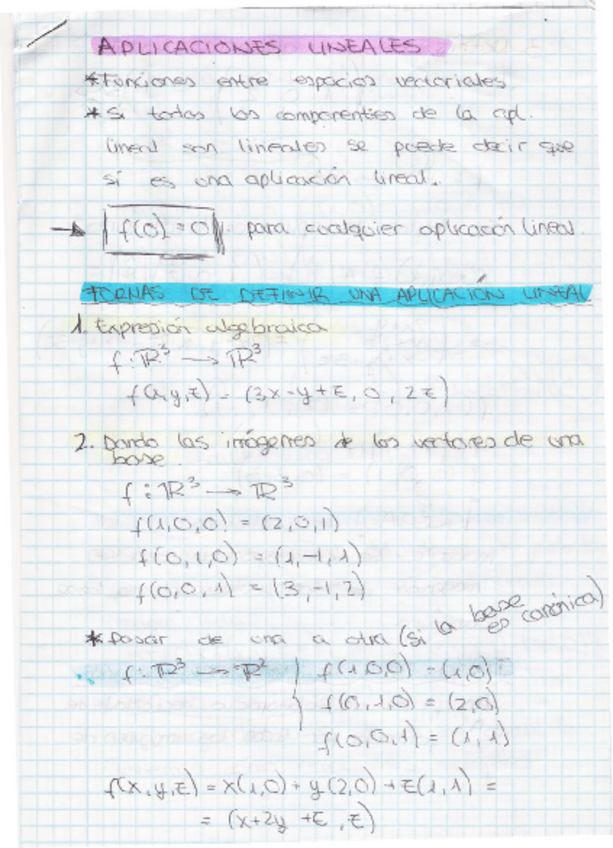 APLICACIONES LINEALES
* Funciones entre espacios vectoriales
* Si todas las componentes de la apl.
lineal son lineales se puede decir que
sí es una aplicación lineal.
→ f(0) = 0 para cualquier aplicación lineal.
FORMAS DE DEFINIR UNA APLICACIÓN LINEAL
1. Expresión algebraica
f: ℝ³ → ℝ³
f(x,y,z) = (3x-y+z, 0, 2z)
2. Dando las imágenes de los vectores de una
base.
f: ℝ³ → ℝ³
f(1,0,0) = (2,0,1)
f(0,1,0) = (1,-1,1)
f(0,0,1) = (3,-1,2)
* Pasar de una a otra (si la base es canónica)
f: ℝ³ → ℝ² f(1,0,0) = (1,0)
f(0,1,0) = (2,0)
f(0,0,1) = (1,1)
f(x,y,z) = x(1,0) + y(2,0) + z(1,1) =
= (x+2y+z, z)